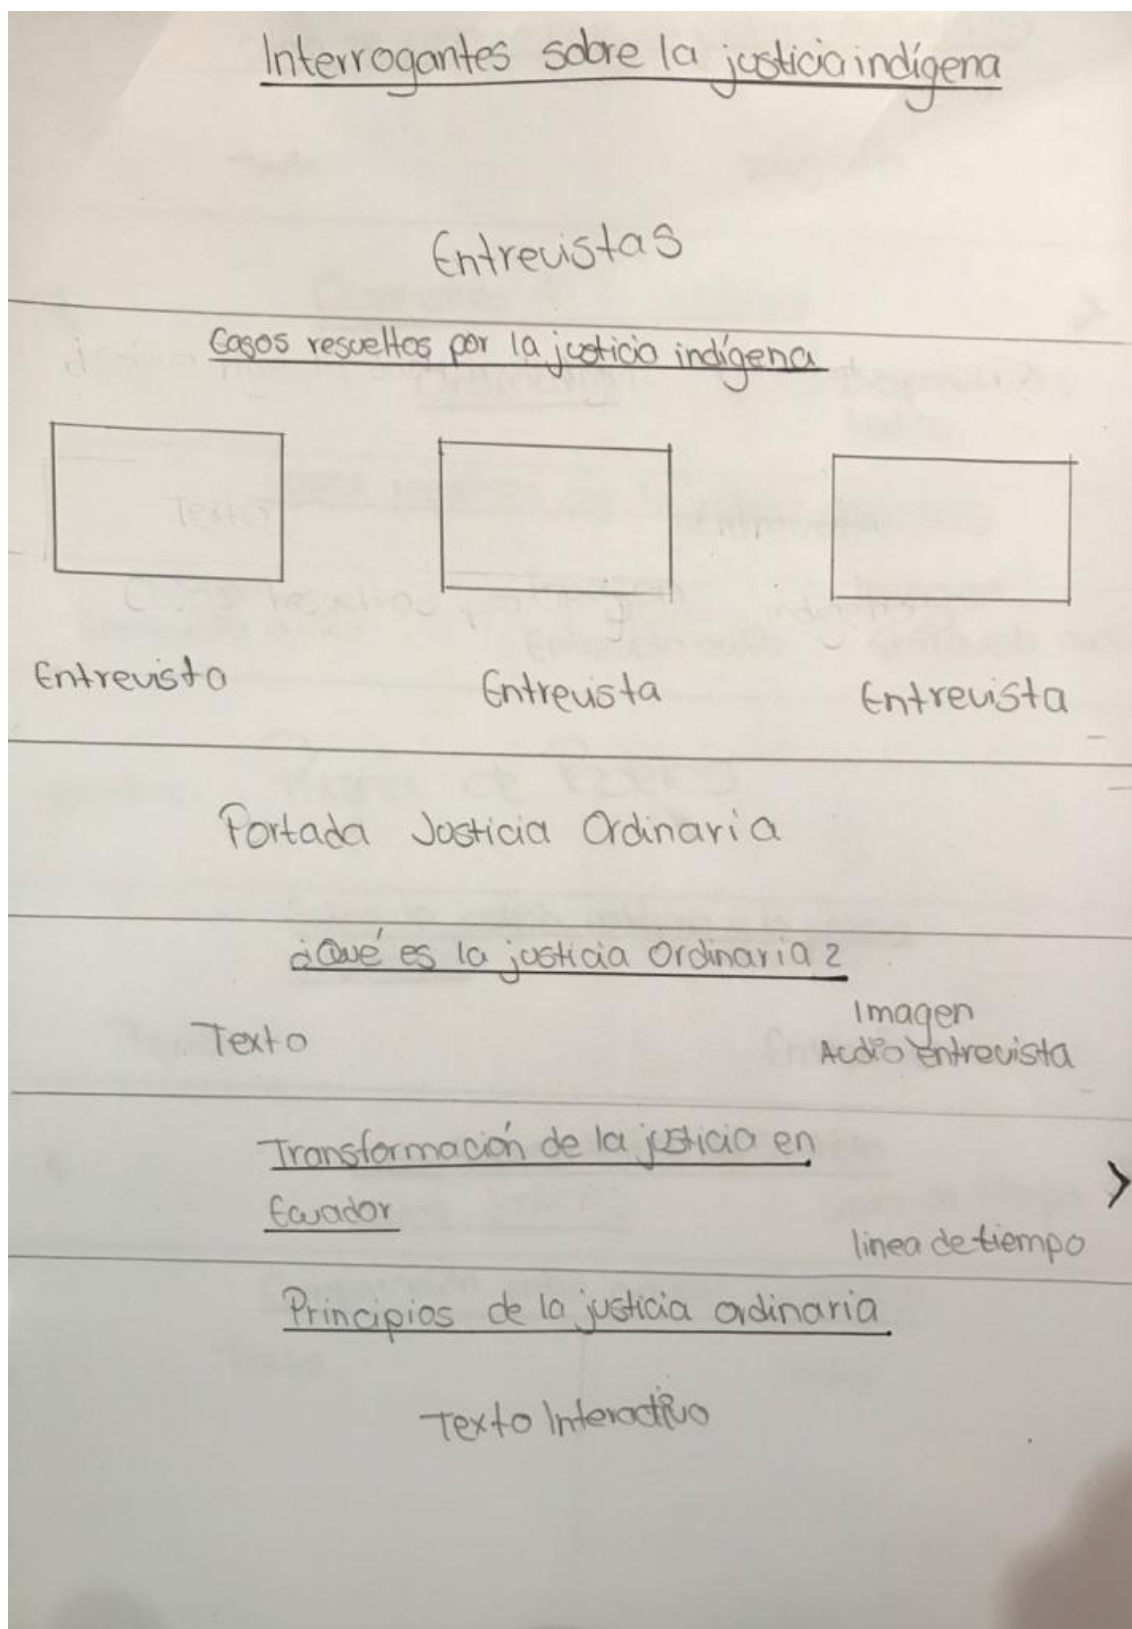 Interrogantes sobre la justicia indígena
Entrevistas
Casos resueltos por la justicia indígena
Entrevista Entrevista Entrevista
Portada Justicia Ordinaria
¿Qué es la justicia Ordinaria?
Texto
Imagen
Audio entrevista
Transformación de la justicia en
Ecuador
linea de tiempo
Principios de la justicia ordinaria
Texto Interactivo